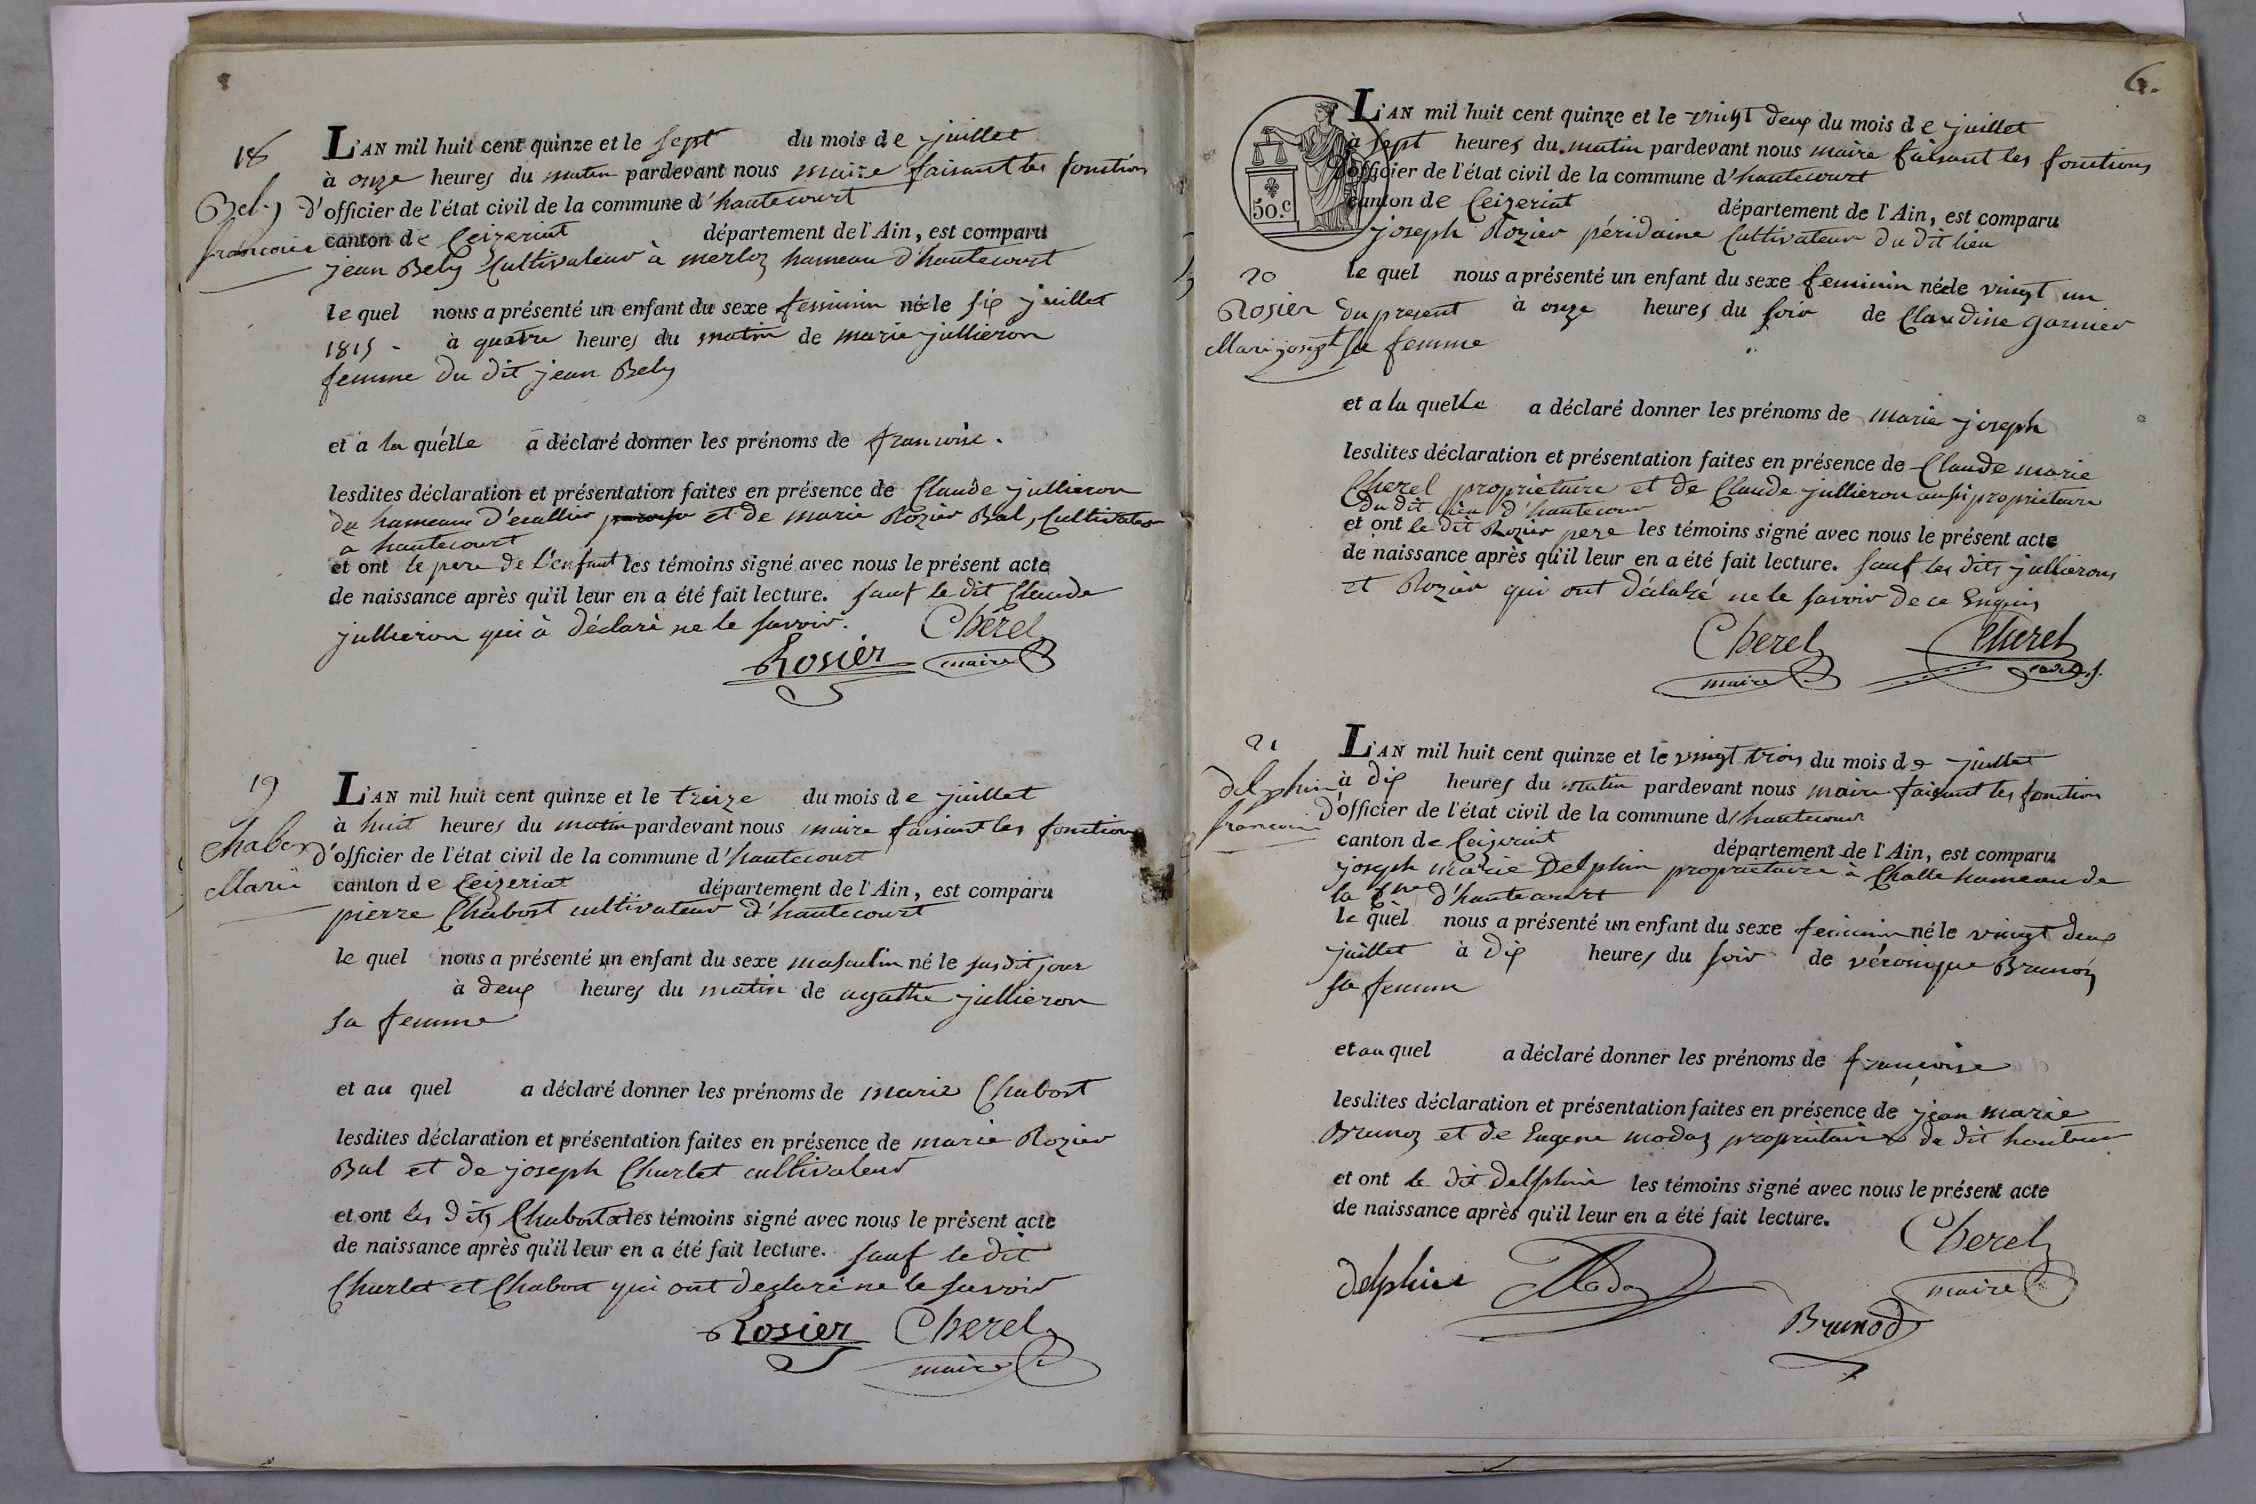 18
Bely
francoise
L'AN mil huit cent quinze et le sept du mois de juillet
à onze heures du matin pardevant nous maire faisant les fonction
d'officier de l'état civil de la commune d'hautecourt
canton de Ceizeriat département de l'Ain, est comparu
jean Bely Cultivateur à merloz hameau d'hautecourt
le quel nous a présenté un enfant du sexe feminin né le six juillet
1815 - à quatre heures du matin de marie jullieron
femme du dit jean Bely
et a la quelle a déclaré donner les prénoms de francoise.
lesdites déclaration et présentation faites en présence de Claude jullieron
du hameau d'ecullier et de marie Rozier Bal, Cultivateur
a hautecourt
et ont le pere de l'enfant les témoins signé avec nous le présent acte
de naissance après qu'il leur en a été fait lecture. sauf le dit Claude
jullieron qui à déclaré ne le savoir. Cherel
Rosier maire
19
Chabost
Marie
L'AN mil huit cent quinze et le treize du mois de juillet
à huit heures du matin pardevant nous maire faisant les fonction
d'officier de l'état civil de la commune d'hautecourt
canton de Ceizeriat département de l'Ain, est comparu
pierre Chabost cultivateur d'hautecourt
le quel nous a présenté un enfant du sexe masculin né le susdit jour
à deux heures du matin de agathe jullieron
sa femme
et au quel a déclaré donner les prénoms de marie Chabost
lesdites déclaration et présentation faites en présence de marie Rozier
Bal et de joseph Churlet cultivateur
et ont les dits Chabost les témoins signé avec nous le présent acte
de naissance après qu'il leur en a été fait lecture. sauf le dit
Churlet et Chabost qui ont declaré ne le savoir
Rosier Cherel
maire
6.
50.c
L'AN mil huit cent quinze et le vingt deux du mois de juillet
à sept heures du matin pardevant nous maire faisant les fonctions
d'officier de l'état civil de la commune d'hautecourt
canton de Ceizeriat département de l'Ain, est comparu
joseph Rozier péridaine Cultivateur du dit lieu
20
Rosier
Marie joseph
le quel nous a présenté un enfant du sexe feminin né le vingt un
du present à onze heures du soir de Claudine garnier
sa femme
et a la quelle a déclaré donner les prénoms de marie joseph
lesdites déclaration et présentation faites en présence de Claude marie
Cherel proprietaire et de Claude jullieron aussi proprietaire
du dit lieu d'hautecour
et ont le dit Rozier pere les témoins signé avec nous le présent acte
de naissance après qu'il leur en a été fait lecture. sauf les dits jullierons
et Rozier qui ont déclaré ne le savoir de ce Enquis
Cherel Cherel
maire
21
delphin
francoise
L'AN mil huit cent quinze et le vingt trois du mois de juillet
à dix heures du matin pardevant nous maire faisant les fonction
d'officier de l'état civil de la commune d'hautecour
canton de Ceizeriat département de l'Ain, est comparu
joseph marie Delphin propriétaire à Challe hameau de
la Cne d'hautecourt
le quel nous a présenté un enfant du sexe feminin né le vingt deux
juillet à dix heures du soir de véronique Brunod
sa femme
et au quel a déclaré donner les prénoms de françoise
lesdites déclaration et présentation faites en présence de jean marie
Brunoz et de Eugene modaz propriétaires du dit hautecour
et ont le dit delphin les témoins signé avec nous le présent acte
de naissance après qu'il leur en a été fait lecture.
Cherel
maire
delphin Modaz
Brunod